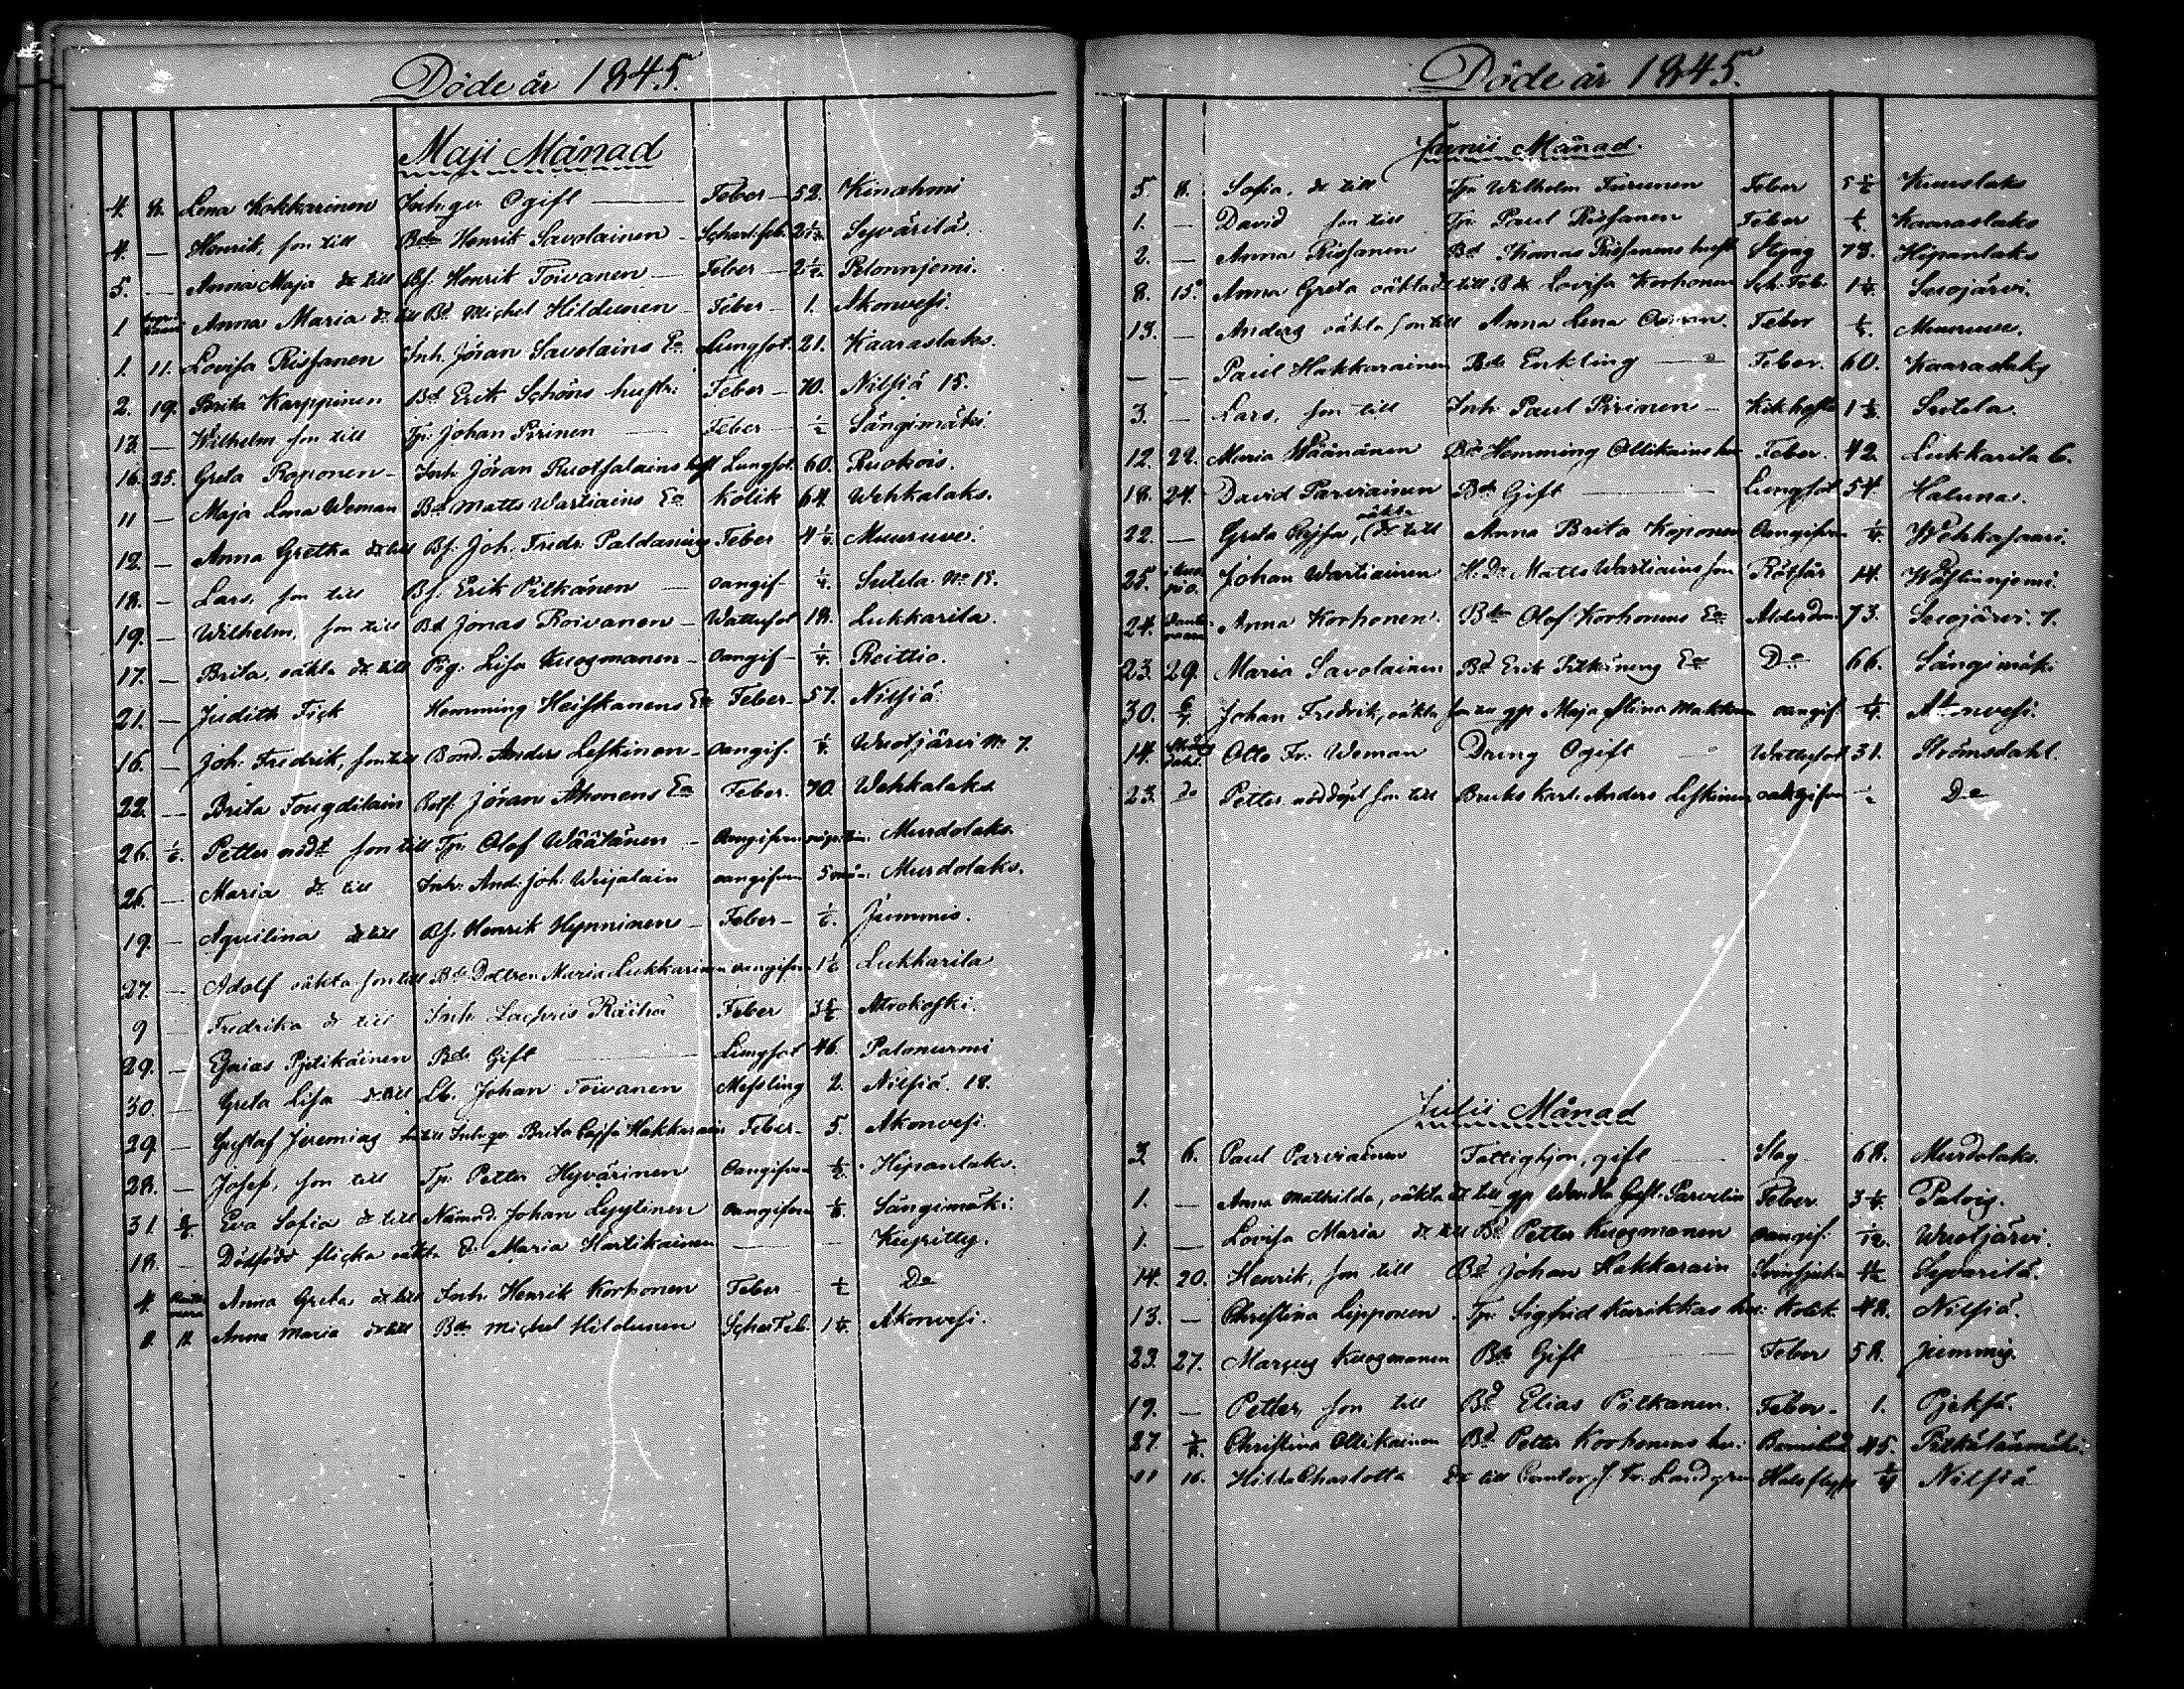 Döde år 1845.
Maji Månad
4. 8. Lena Kokkarinen Inh:ga Ogift — Feber — 52. Kinahmi
4. — Henrik, son till Bde Henrik Savolainen — Scharl.feb. 2 Syvärilä.
5. — Anna Maja dr till Bf. Henrik Toivanen — Feber — 2 1/2. Pelonnjemi.
1 Anna Maria dr till Bd. Michel Hildunen — Feber — 1. Akonvesi.
1. 11. Lovisa Rissanen Inh. Jöran Savolains Ea Lungsot. 21. Kaaraslaks.
2. 19. Brita Karppinen Bd Erik Schöns hustr: Feber — 70. Nilsiä 15.
13. — Wilhelm son till Tp. Johan Pirinen — Feber — 1/2 Sängimäki
16. 25. Greta Roponen — Inh Jöran Ruotsalains hust Lungsot. 60. Ruokois.
11 — Maja Lena Weman Bd. Matts Wartiains Ea Kolik 64. Wehkalaks.
12. — Anna Gretka dr till Bf. Joh. Fredr. Paldanius Feber 4 1/4. Muuruve.
18. — Lars, son till Bf. Erik Pitkänen — oangif — 1/4. Sutela No 15.
19. — Wilhelm, son till Bd Jonas Roivanen — Wattusot 18. Lukkarila.
17. — Brita, oäkta dr till Pig. Lisa Kuosmanen — oangif — 1/4. Reittio.
21. — Judith Fick Hemming Heiskanens Ea Feber — 57. Nilsiä
16. — Joh: Fredrik, son till Bond. Anders Leskinen — oangif. 1/4. Wuotjärvi No 7.
22. — Brita Tougdilain Rotf. Jöran Ahonens Ea Feber. 70. Wehkalaks.
26. 1/6. Petter nödt son till Tp. Olof Wäätänen — Oangifven Murdolaks.
26. — Maria dr till Inh: And: Joh: Weijalain oangifven 5 mån: Murdolaks.
19. — Aquilina dr till Bf. Henrik Hynninen — Feber — 1/6. Jummis.
27. — Adolf oäkta son till Bde Dottren Maria Lukkarinen oangifven 1 1/6 Lukkarila
9 — Fredrika dr till Inh Lachris Räihä Feber 3 Atrokoski.
29. — Esaias Pjelikäinen Bde Gift — Lungsot 46. Palonurmi
30. — Greta Lisa dr till Lb. Johan Toivanen Messling 2. Nilsiä. 18.
29. — Gustaf Jeremias till Inh:ga Brita Cajsa Hakkarain Feber — 5. Akonvesi.
28. — Josef, son till Tp. Petter Hyvärinen Oangifven Hipanlaks.
31. Eva Sofia dr till Nämnd. Johan Lyytinen oangifven Sängimäki.
18. — Dödfödd flicka oäkta Maria Hartikainen — — Kupritty.
4. Anna Greta dr till Inh Henrik Korhonen Feber 1/2 Do
8. 12. Anna Maria dr till Bde Michel Hildunen Schar Feb. Akonvesi.
Döde år 1845.
Junii Månad.
5. 8. Sofia, dr till Tp. Wilhelm Turunen Feber Kuuslaks
1. — David son till Tp. Paul Rissanen Feber Kaaraslaks
2. — Anna Rissanen Bd. Thomas Rissanens hust Styng 78. Hipanlaks
8. 15. Anna Greta oäkta dr till B dr Lovisa Korhonen Sch. Feb. Suojärvi.
13. — Anders oäkta son till Anna Lena Feber Muuruve.
— — Paul Hakkarainen Bde Enkling — Feber. 60. Kaaraslaks
3. — Lars, son till Inh: Paul Pirinen — Kikhosta Sutela.
12. 22. Maria Wäänänen Bde Hemming Ollikains hu Feber. 42. Lukkarila 6.
18. 24. David Parviainen Bde Gift — Lungsot 54. Haluna.
22. — Greta Cajsa, oäkta dr till Anna Brita Koponen Oangifven Wehkasaari.
25. Johan Wartiainen H. Dr Matts Wartiains son Rötsår 14. Wäslinnjemi.
24. Anna Korhonen Bde Olof Korhonens Ea Ålderdom 73. Suojärvi. 7.
23. 29. Maria Savolainen Bd. Erik Pitkänens Ea Do 66. Sängimäki
30. 6/7. Johan Fredrik, oäkta son till gp Maja Stina Makkon oangif. 1/4. Akonvesi.
14. Otto Fr. Weman Dräng Ogift Wattusot 31. Strömsdahl.
23. do Petter nöddöpt son till Bruks karl. Anders Leskinen oangifven Do
Julii Månad
3. 6. Paul Parviainen Fattighjon, gift — Slag 68. Murdolaks.
1. — Anna Mathilda, oäkta dr till gp Wendla Gust. Parvelin Feber. Palois.
1. — Lovisa Maria dr till Bd. Petter Kuosmanen oangif. 1/12. Wuotjärvi.
14. 20. Henrik, son till Bd. Johan Hakkarain Syvärilä.
13. — Christina Lipponen Tp. Sigfrid Kurikkas hu: Kolik. 48. Nilsiä.
23. 27. Marcus Kuosmanen Bde Gift — Feber 58. Jummis.
19. — Petter, son till Bd. Elias Pitkänen. Feber — 1. Pjeksä.
27. Christina Ollikainen Bd. Petter Korhonens hu: 45. Pitkälänmäki.
11 16. Hilda Charlotta dr till Cantor J. Fr. Landgren Nilsiä